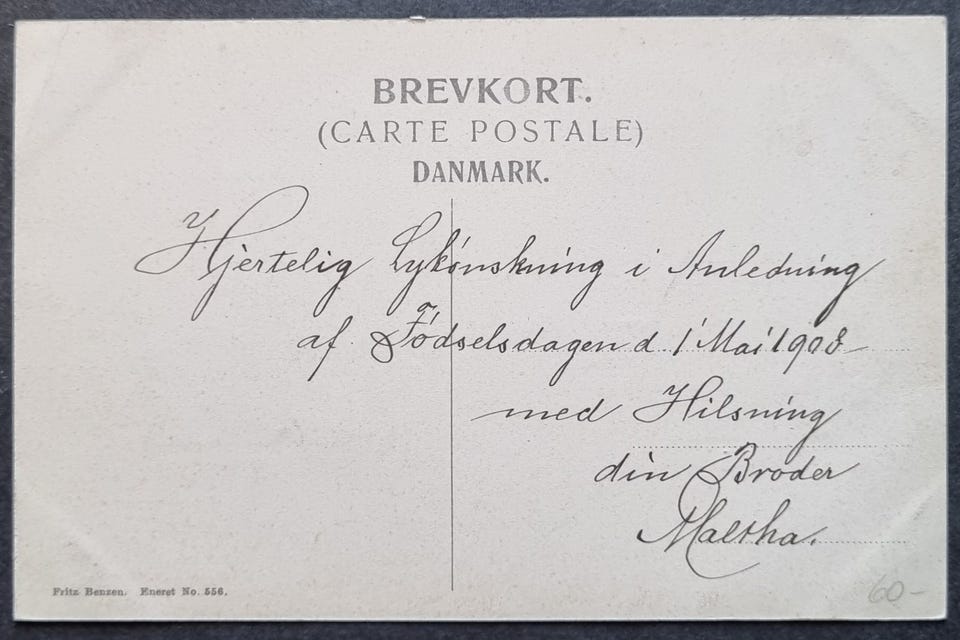 BREVKORT.
(CARTE POSTALE)
DANMARK.
Hjertelig Lykønskning i Anledning
af Fødselsdagen d 1 Mai 1908
med Hilsning
din Broder
Maltha.
Fritz Benzen. Eneret No. 556.
60-